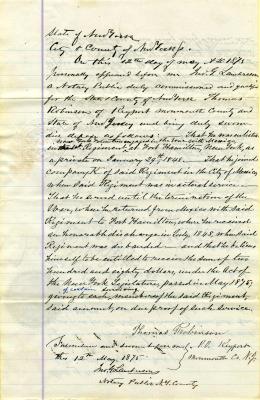 State of New York
City & County of New York ss.
On this 12th day of May A.D. 1875
personally appeared before me Jno. F.
a Notary Public duly commissioned and
for the State & County of New York Thomas
Robinson of Keyport Monmouth County and
State of New Jersey and being duly sworn
did depose as follows. That he was enlisted
in the 1st Regiment, at Fort Hamilton, New York, as
a private on January 29th 1848. That he joined
company of said Regiment in the City of Mexico,
when said Regiment was in actual service
That he served until the termination of the
War, when he returned from Mexico with said
Regiment to Fort Hamilton, when he received
an honorable discharge in July, 1848, when said
Regiment was disbanded and that he believes
himself to be entitled to receive the sum of two
hundred and eighty dollars, under the Act of
the New York Legislature, passed in May 1875,
giving to each surviving member of the said Regiment,
said amount, on due proof of such service.
Thomas Robinson
Subscribed and sworn before me P.O. Keyport
this 12th May 1875 Monmouth Co. N.J.
Notary Public N.Y. County